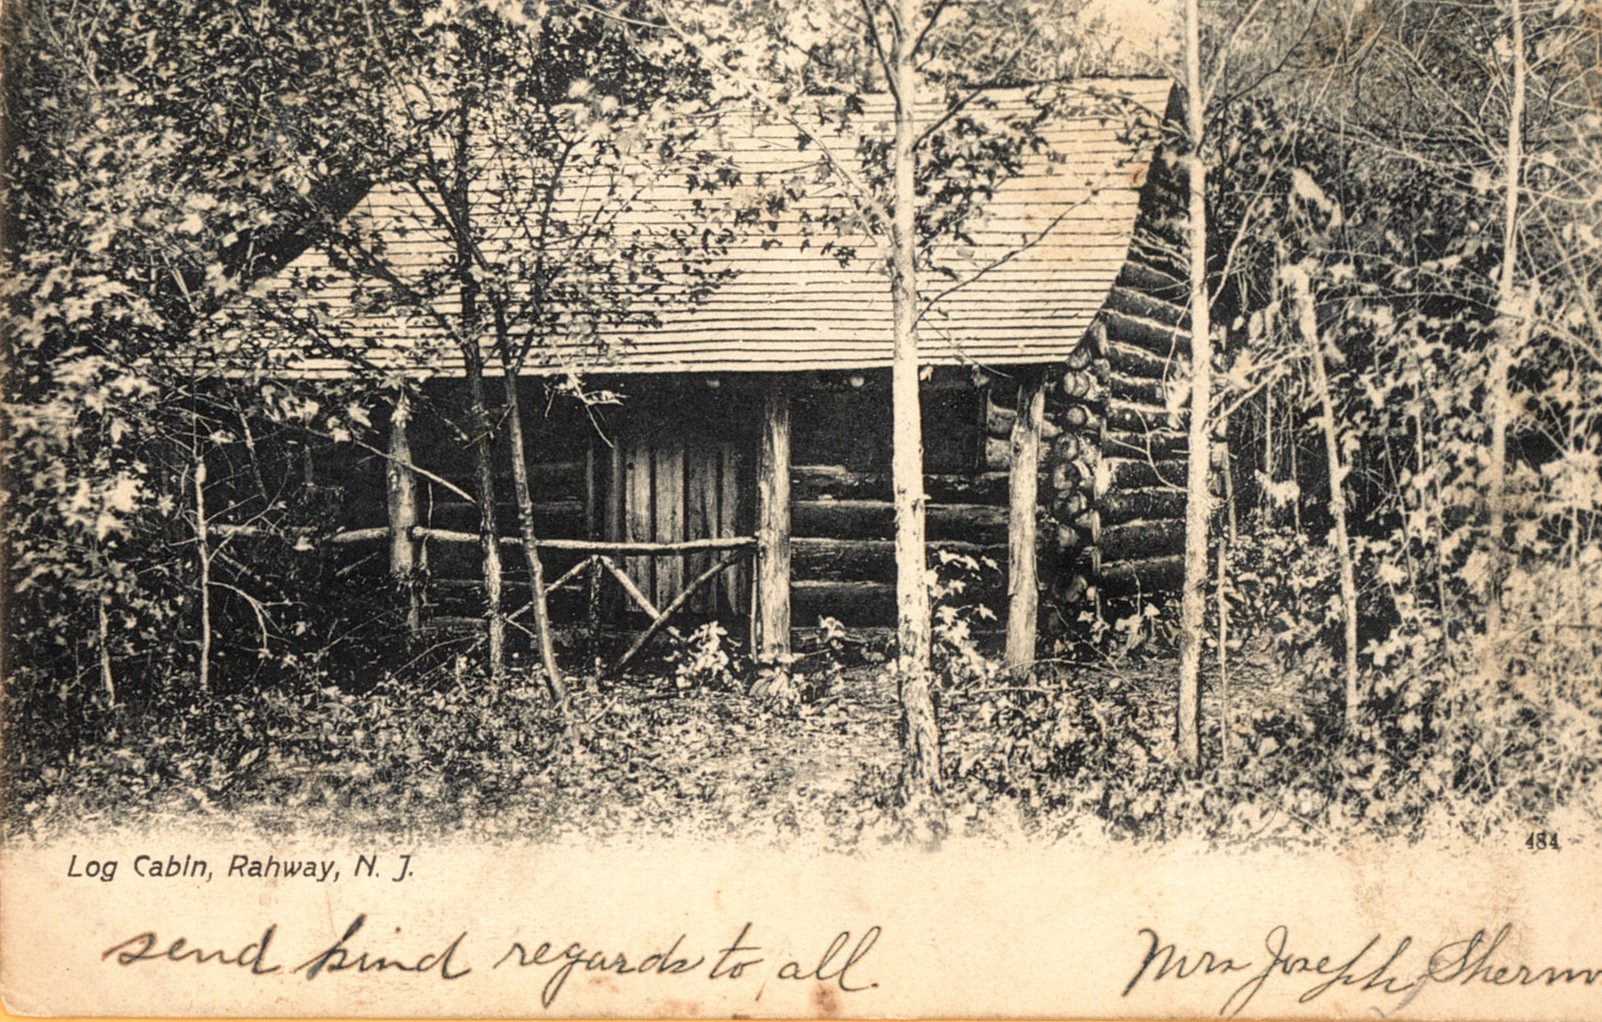 484
Log Cabin, Rahway, N. J.
send kind regards to all.
Mrs Joseph